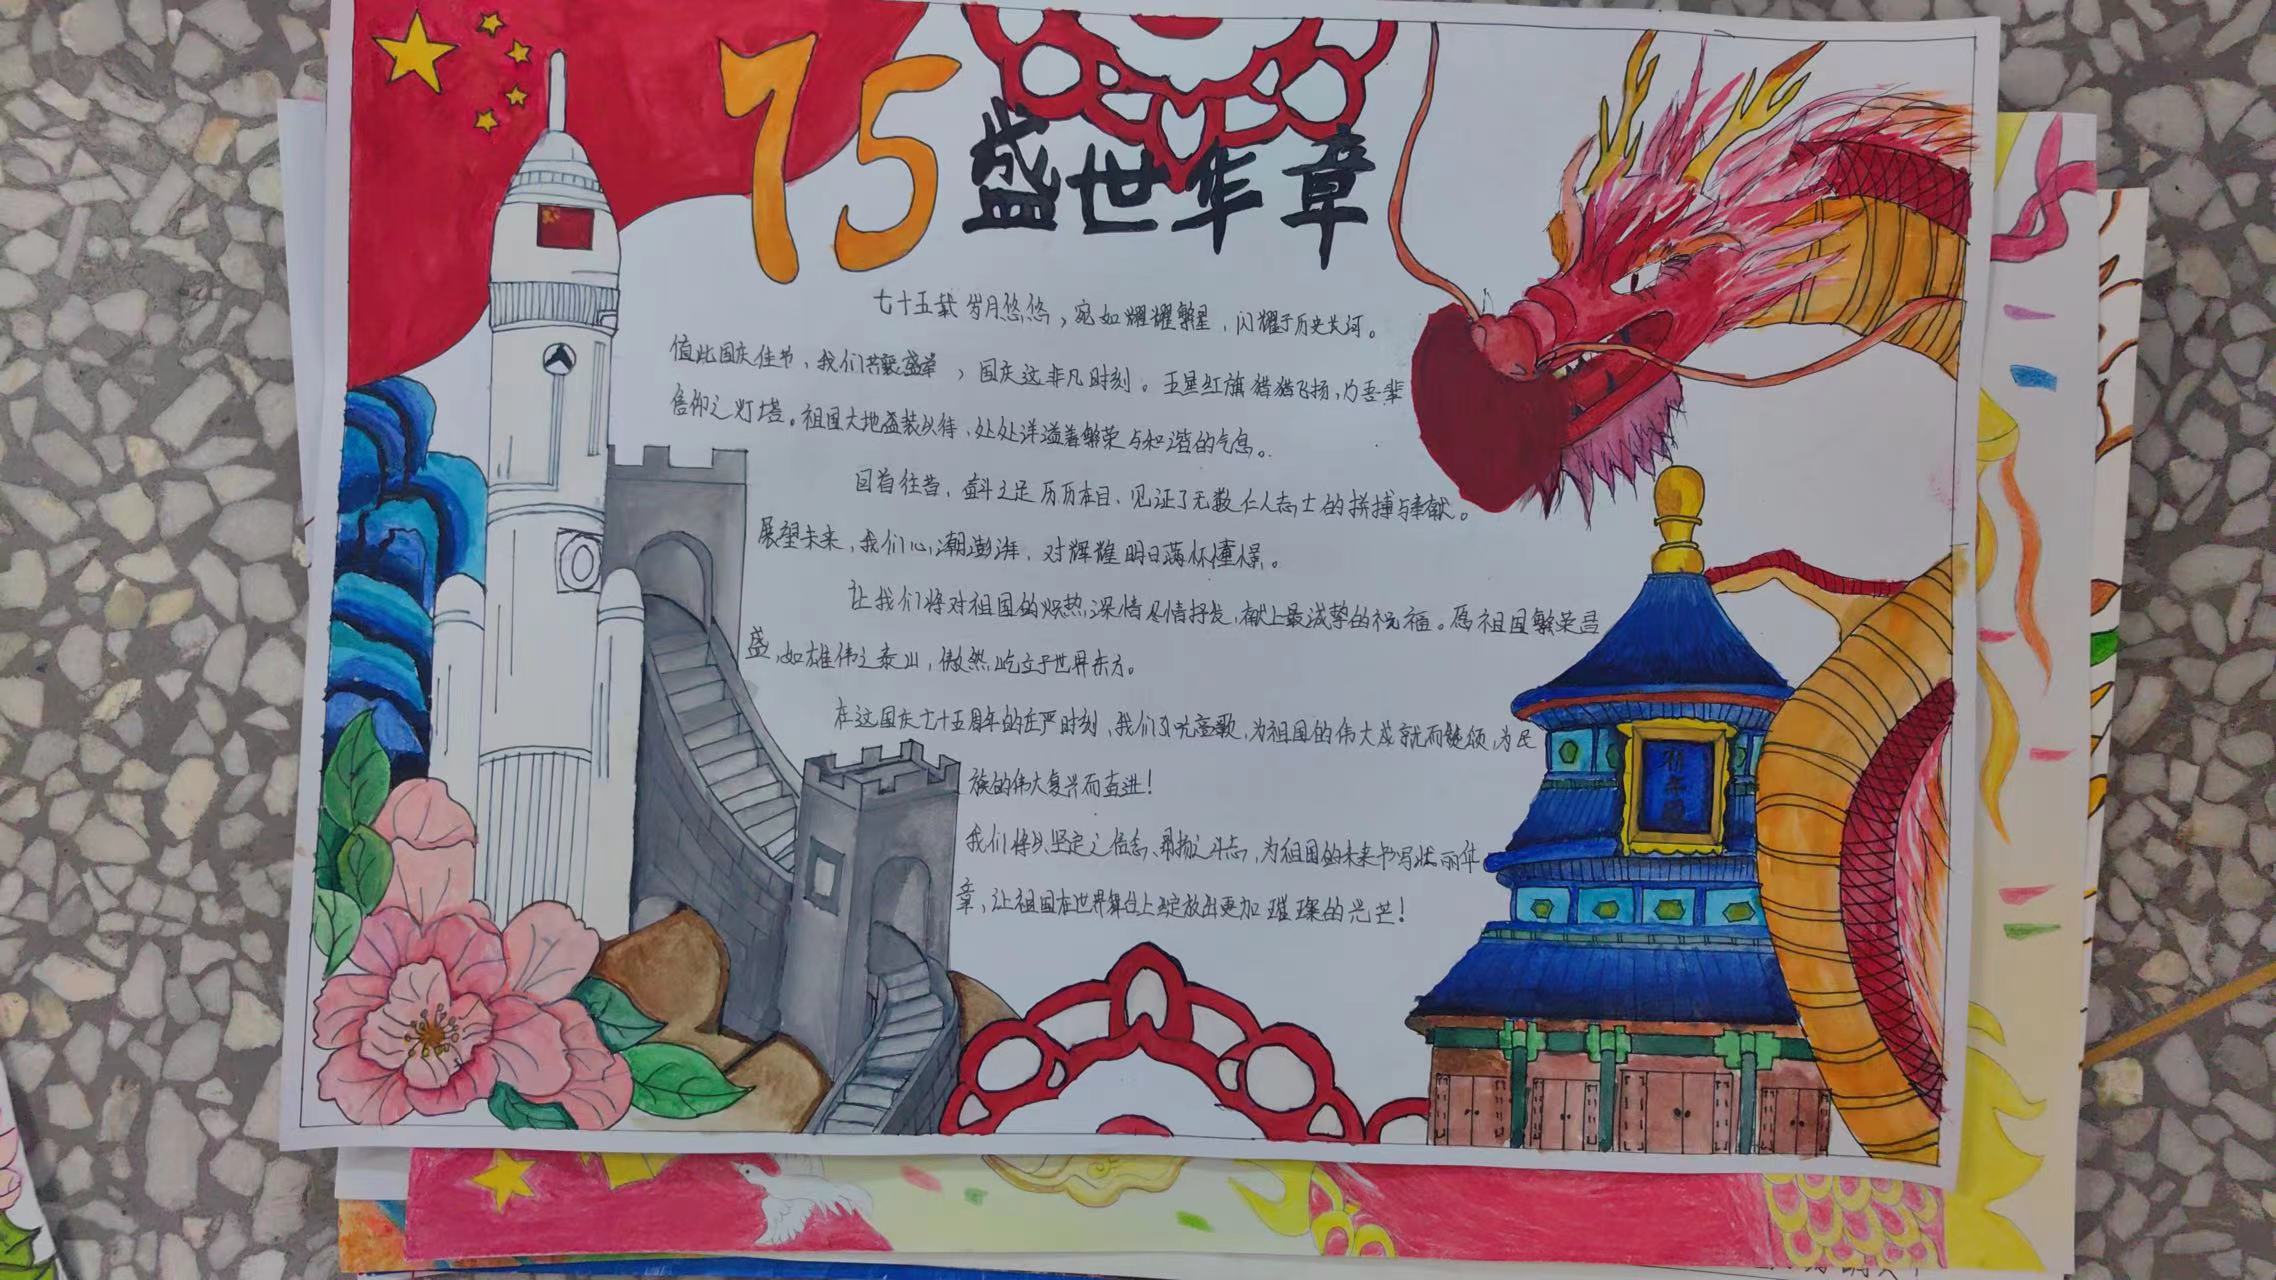 75
盛世华章
七十五载岁月悠悠，宛如耀耀繁星，闪耀于历史长河。
值此国庆佳节，我们共襄盛举，国庆这非凡时刻。五星红旗猎猎飞扬，乃吾辈
信仰之灯塔。祖国大地盛装以待，处处洋溢着繁荣与和谐的气息。
回首往昔，奋斗之足历历在目，见证了无数仁人志士的拼搏与奉献。
展望未来，我们心潮澎湃，对辉煌明日满怀憧憬。
让我们将对祖国的炽热深情尽情抒发，献上最诚挚的祝福。愿祖国繁荣昌
盛，如雄伟之泰山，傲然屹立于世界东方。
在这国庆七十五周年的庄严时刻，我们引吭高歌，为祖国的伟大成就而赞颂，为民
族的伟大复兴而奋进！
我们将以坚定之信念、昂扬之斗志，为祖国的未来书写壮丽华
章，让祖国在世界舞台上绽放出更加璀璨的光芒！